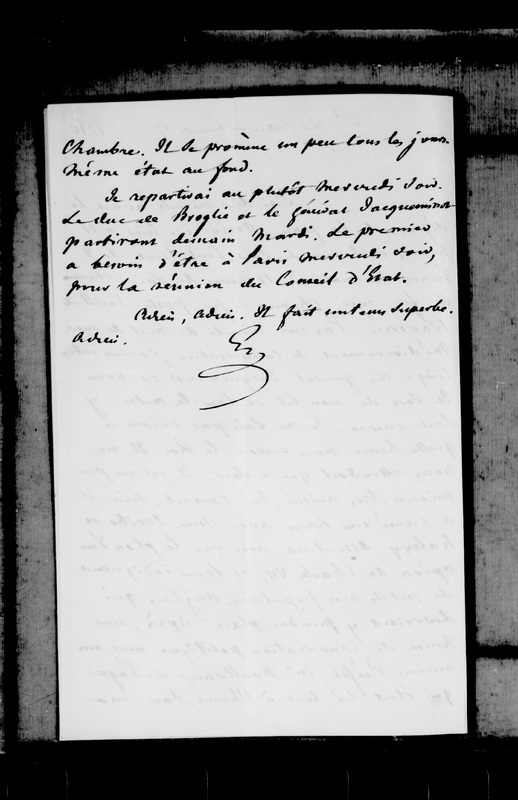 Chambre. Il se promène un peu tous les jours.
Même état au fond.
Je repartirai au plutôt mercredi soir.
Le duc de Broglie et le général Jacqueminot
partiront demain mardi. Le premier
a besoin d'être à Paris mercredi soir,
pour la réunion du Conseil d'Etat.
Adieu, adieu. Il fait un tems superbe.
Adieu.
G